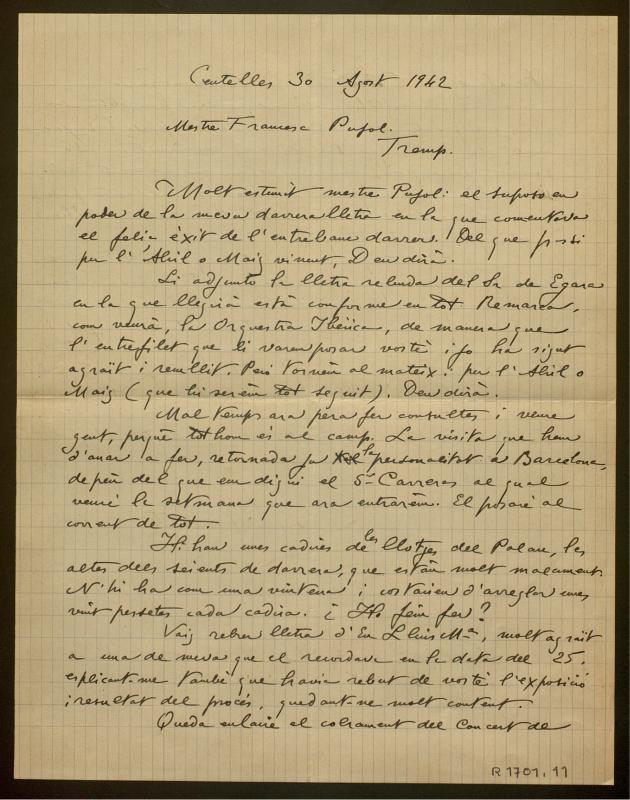 Centelles 30 Agost 1942
Mestre Francesc Pujol.
Tremp.
Molt estimat mestre Pujol: el suposo en
poder de la meva darrera lletra en la que comentava
el feliç èxit de l'entrebanc darrer. Del que passi
per l'Abril o Maig vinent, Deu dirà.
Li adjunto la lletra rebuda del Sr de Egara
en la que llegirà està conforme en tot. Remarca,
com veurà, la Orquestra Ibèrica, de manera que
l'entrefilet que li varem posar vostè i jo ha sigut
agraït i remullit. Però tornem al mateix: per l'Abril o
Maig (que hi serèm tot seguit). Deu dirà.
Mal temps ara per a fer consultes i veure
gent, perquè tothom és al camp. La visita que hem
d'anar a fer, retornada ja la personalitat a Barcelona,
depèn del que em digui el Sr Carreras al qual
veuré la setmana que ara entrarèm. El posaré al
corrent de tot.
Hi han unes cadires de les llotjes del Palau, les
altes dels seients de darrera, que estàn molt malament.
N'hi ha com una vintena i costarien d'arreglar unes
vint pessetes cada cadira. ¿ Ho fèm fer?
Vaig rebre lletra d'En Lluis Mª, molt agraït
a una de meva que el recordava en la data del 25.
explicant-me també que havia rebut de vostè l'exposició
i resultat del procés, quedant-ne molt content.
Queda enlaire el cobrament del Concert de
R 1701, 11